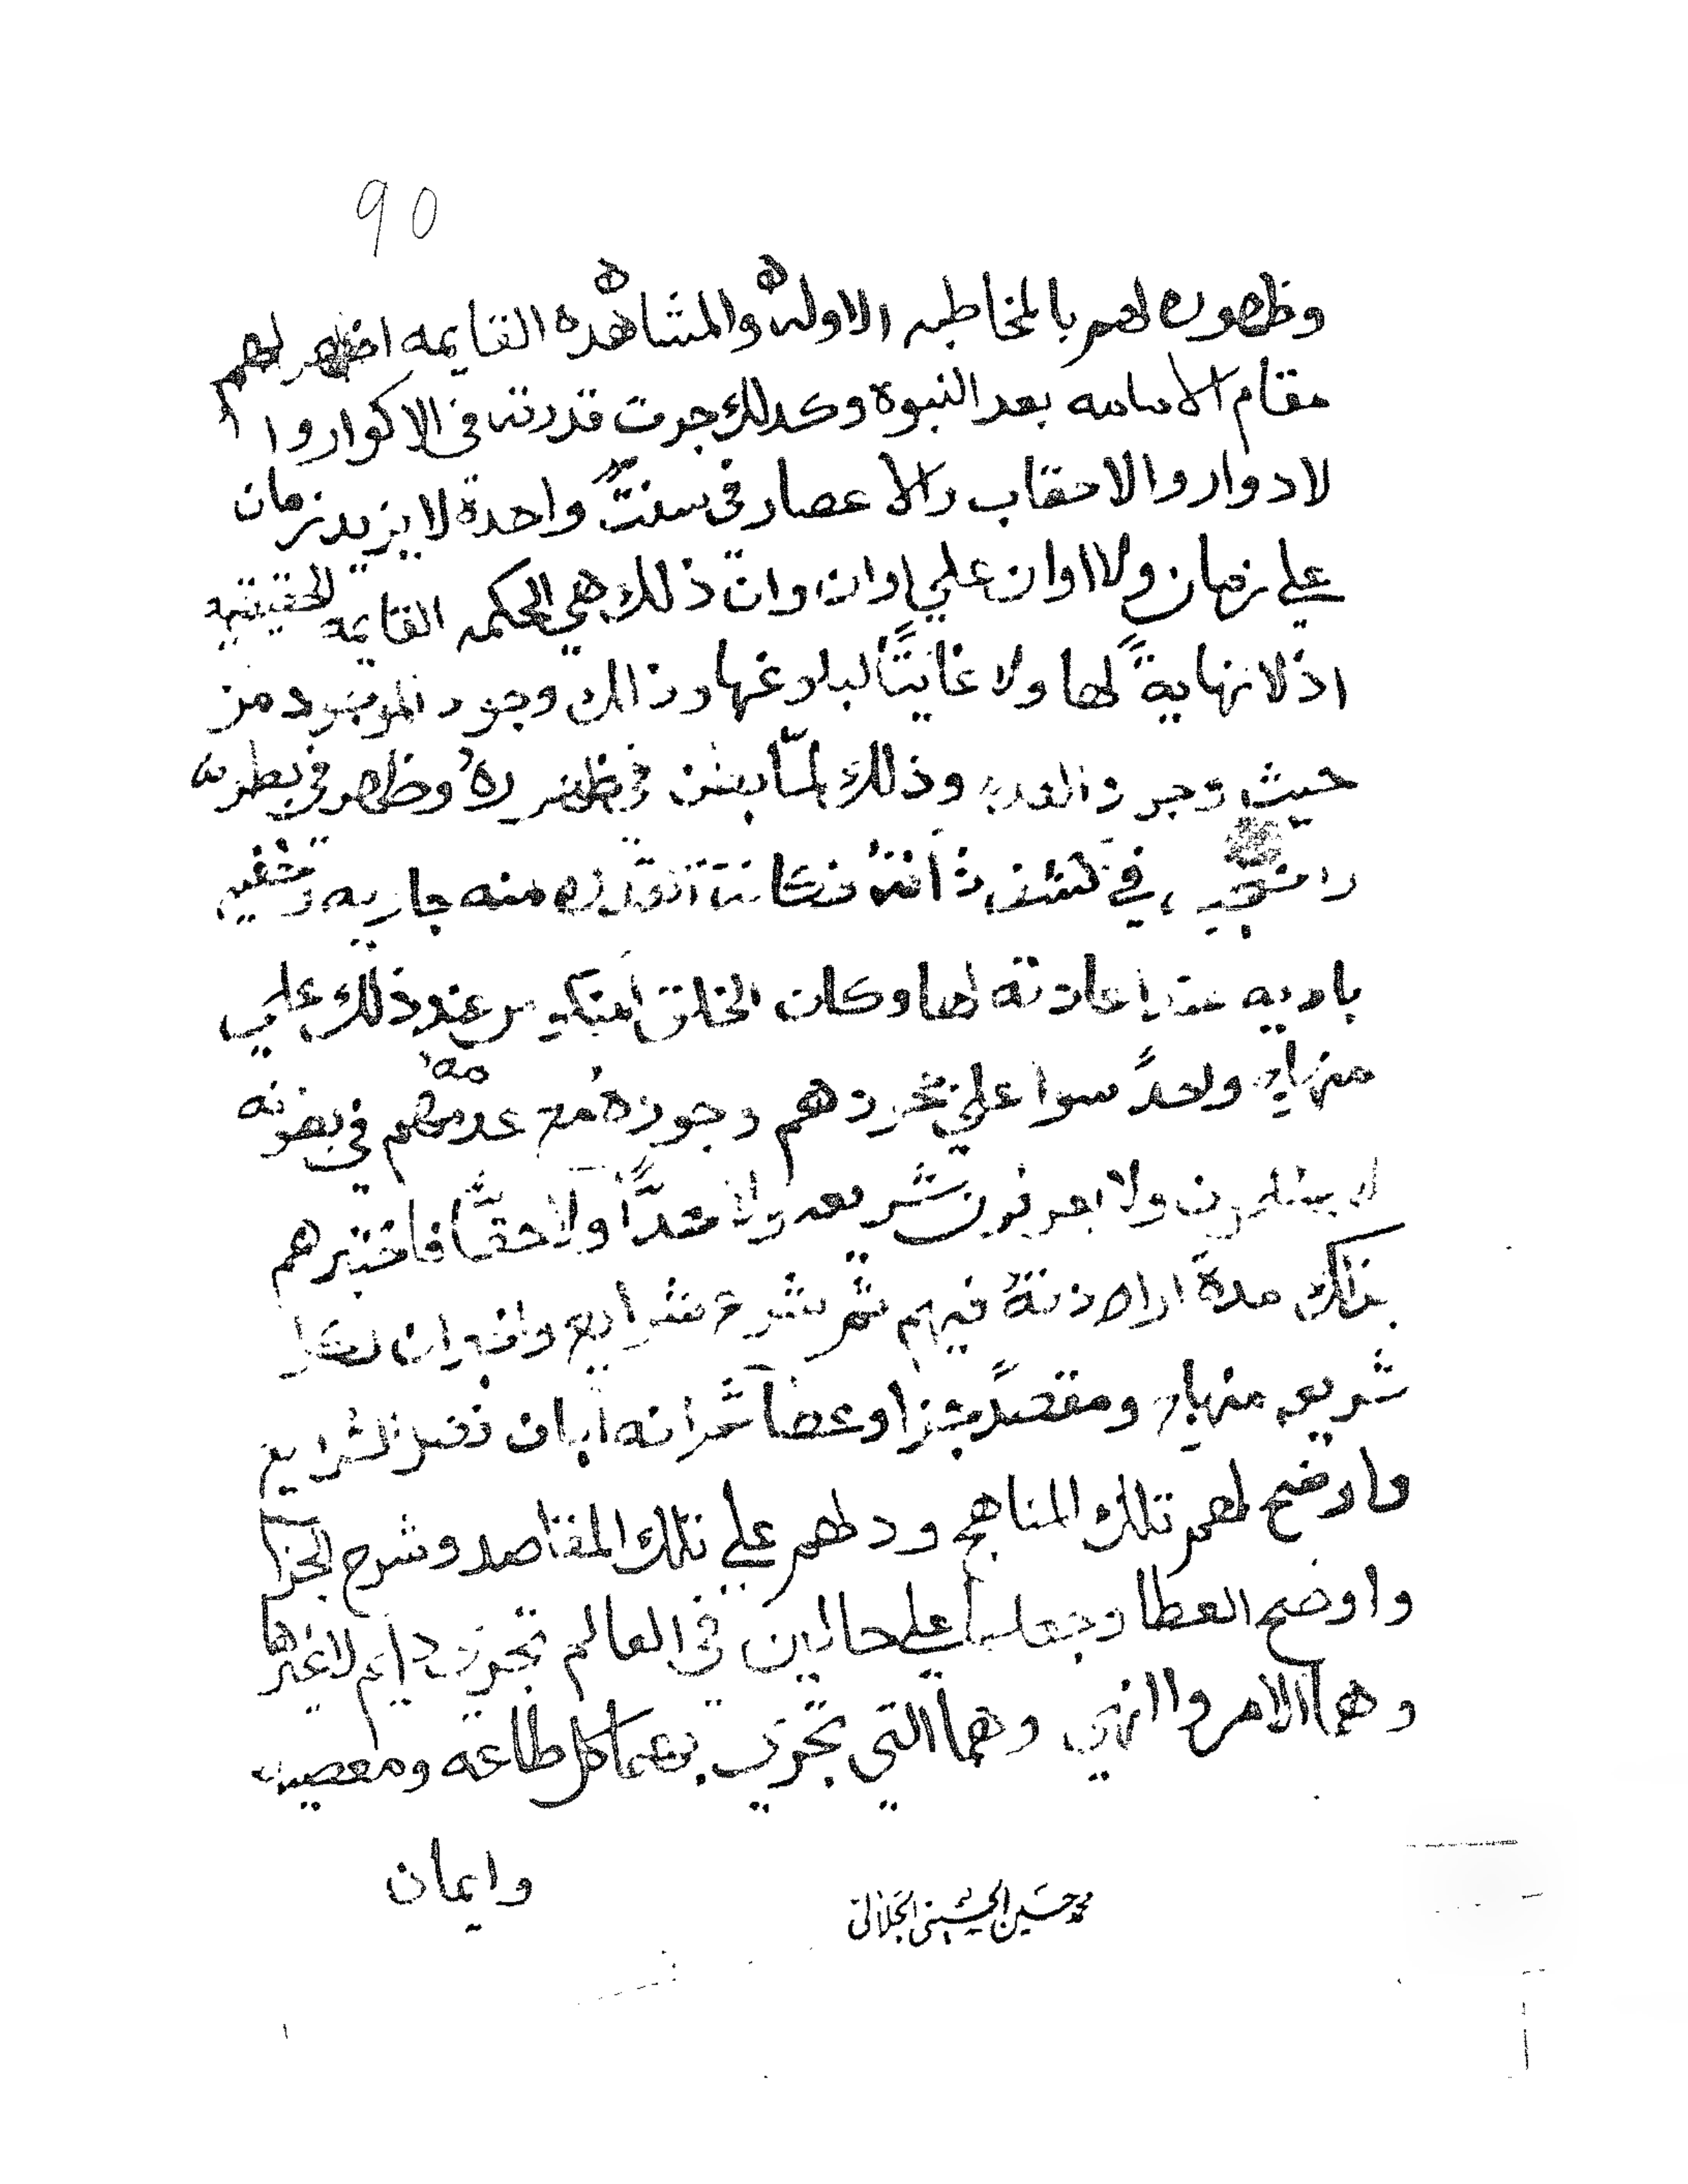 90
وظهوره لهم بالمخاطبه الاوله والمشاهده القايمه اظهر لهم
مقام الامامه بعد النبوة وكدلك جرت قدرته في الاكوار وا
لادوار والاحقاب والاعصار في سنتٍ واحدة لا يزيد زمان
علي زمان ولا اوان علي اوان وان ذلك هي الحكمه القايمه الحقيقيه
اذ لا نهايةً لها ولا غايتًا لبلوغها وذالك وجود الموجود من
حيث وجود القدره وذلك لمّا بطن في ظهوره وظهر في بطونه
في كشف ذاته فكانت القدره منه جاريه وخفيه
باديه عند اعادته لها وكان الخلق عند ذلك علي
منهاج واحدً سوا علي وجوده مع عدمهم في بطونه
لا يعلمون ولا يعرفون شريعه ولا حدًّا ولا حقًّا فاختبرهم
بذالك مدة ارادته فيهم ثم شرع شرايع وان لكل
شريعه منهاج ومقصدً وجزا وعطا ثم انه ابان الشرايع
واوضح لهم تلك المناهج ودلهم علي تلك المقاصد وشرح الجزا
واوضح العطا وجعلها علي حالين في العالم تجري دايم لا غيرها
وهما الامر واالنهي وهما التي تجري بهما كل طاعه ومعصيه
وايمان
محمد حسين الحسيني الجلالي